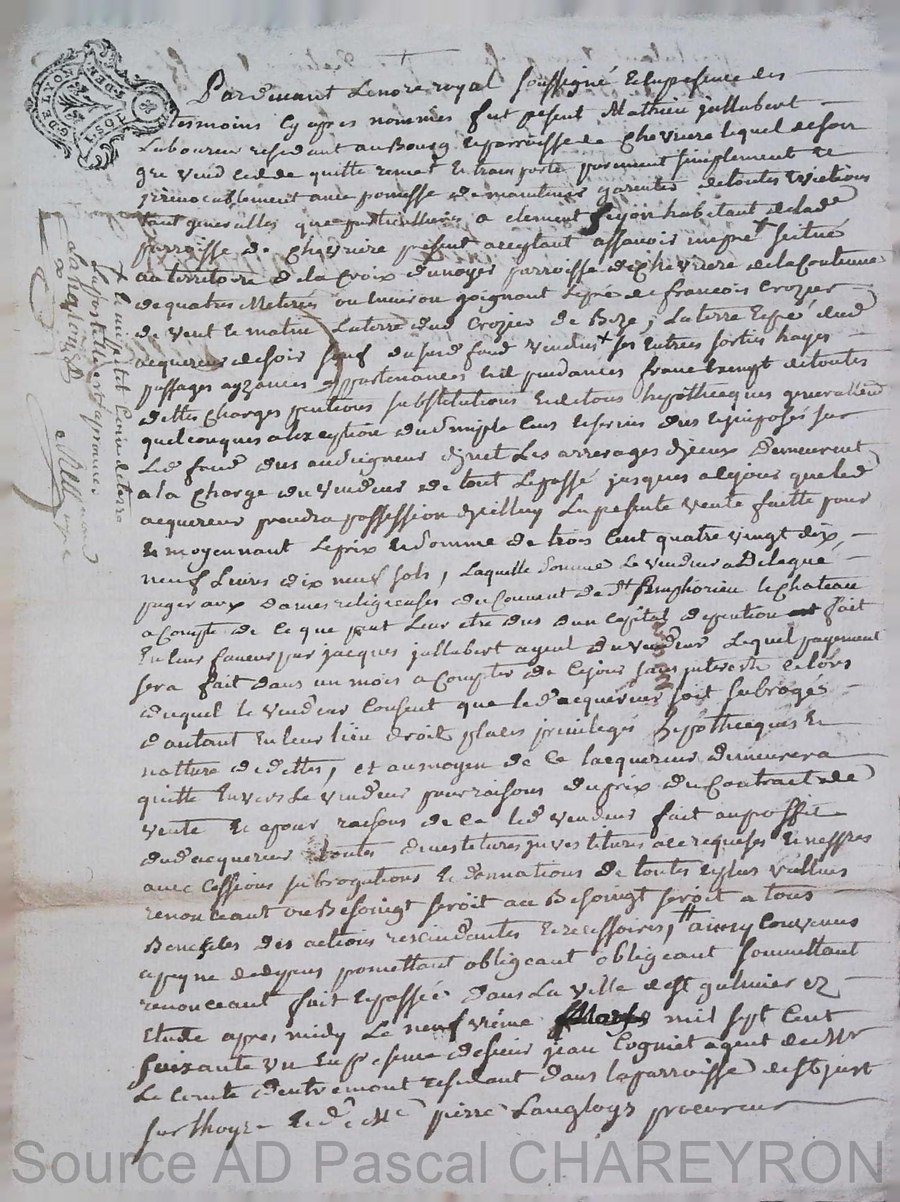 G. DE LYON
Pardevant Lenore royal soussigné Et En presence des
tesmoins Cy apres nommés fut pesent Mathieu jallabert
Laboureur residant au Bourg Et parroisse de Chevriere lequel de son
gre vend cedde quitte remet Et transporte purement simplement Et
jrrevocablement avec pomesse de maintenir garentir de toutes Evictions
tant generalles que particullieres a clement Seyon habitant de lade
parroisse de Chevriere pesent acceptant assavoir un pré scitué
au territoire de la Croix du noyer parroisse de Chevriere de la Contenue
de quatres Meterées ou Environ joignant Le pré de francois Crozier
de vent Et matin La terre dud Crozier de Bize, La terre Et pré dud
acquereur de soir sauf du sud fond vendus + ses Entrées sorties hayes
passages ayzances appartenances Et dependances franc Exempt de toutes
dettes Charges pentions substitutions Et de tous hypothecques generallem
quelconques a lexeption du simple Cens Et servis dus Et jmposés sur
Le fond dus au seigneur direct Les arrerages djceux Demeurent
a la Charge du Vendeur de tout Le passé jusques a cejour que led
acquereur prendra possession djcelluy La pesente vente faitte pour
Et moyennant Le prix Et somme de trois Cent quatre vingt dix
neuf Livres dix neuf sols, Laquelle somme Le vendeur a Delegué
payer aux dames religieuses du Couvent de St Simphorien le Chateau
a Compte de Ce que peut Leur etre dus dun Capital de pention fait
En leur faveur par jacques jallabert ayeul du vendeur Lequel payement
sera fait dans un mois a Compter de Cejour sans jnterests Et lors
duquel le vendeur Consent que led acquereur soit subrogés
dautant En leur lieu droit places privileges hypothecques Et
natture de dettes, et au moyen de Ce lacquereur demeurera
quitte Envers Le vendeur pour raisons du prix du Contract de
vente Et a pour raisons de Ce led vendeur fait au proffit
dud acquereur toutes devestitures jnvestitures a ce requises Et necessres
avec Cessions subrogations Et donnations de toutes Et plus vallues
renonceant ou Besoingt seroit ace Besoingt seroit a tous
Benefices des actions rescindantes Et rescissoires, ainsy Convenus
a peyne de depens promettant obligeant obligeant soumettant
renonceant fait Et passée dans La ville de St galmier Ez
Etude apres midy Le neuf vieme mil sept Cent
soixante un En pesence de sieur jean Cogniet agent de Mr
Le Comte dentremont residant dans la parroisse de St just
sur Thoyre Et de Me pierre Langloys procureur